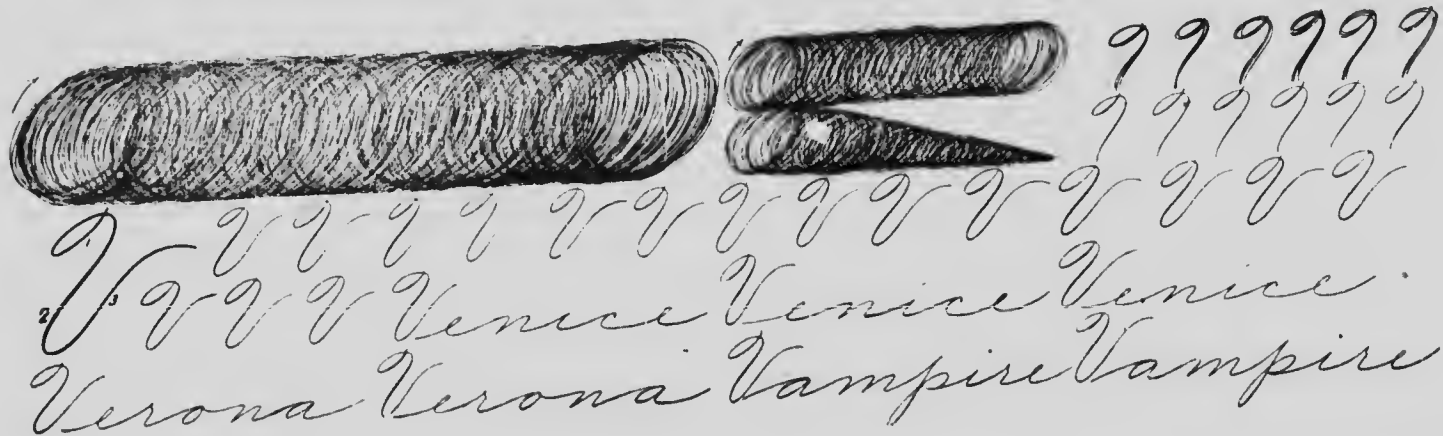 V V V V V V V V V V V V V V
2 V 3 V V V Venice Venice Venice
Verona Verona Vampire Vampire